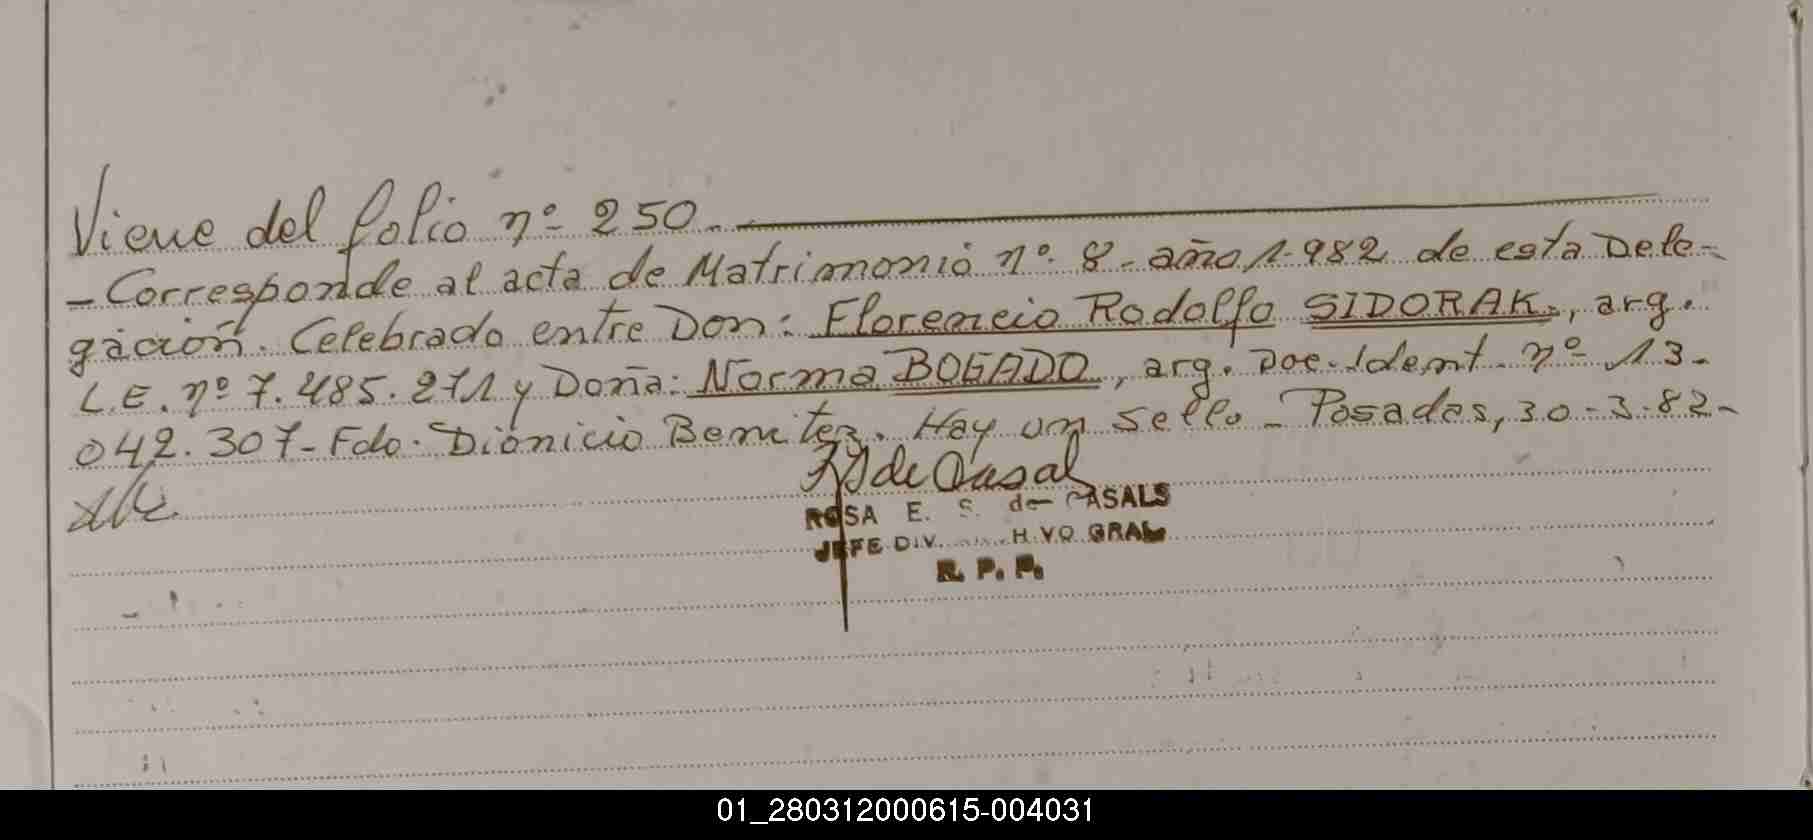 Viene del folio nº 250.
- Corresponde al acta de Matrimonio nº 8 - año 1.982 de esta Dele-
gación. Celebrado entre Don: Florencio Rodolfo SIDORAK., arg.
L.E. nº 7.485.271 y Doña: Norma BOGADO, arg. Doc. Ident. nº 13.
042.307 - Fdo. Dionicio Benitez. Hay un sello - Posadas, 30-3-82-
de Casal
ROSA E. S. de CASALS
JEFE DIV. H.VO GRAL
R. P. P.
01_280312000615-004031